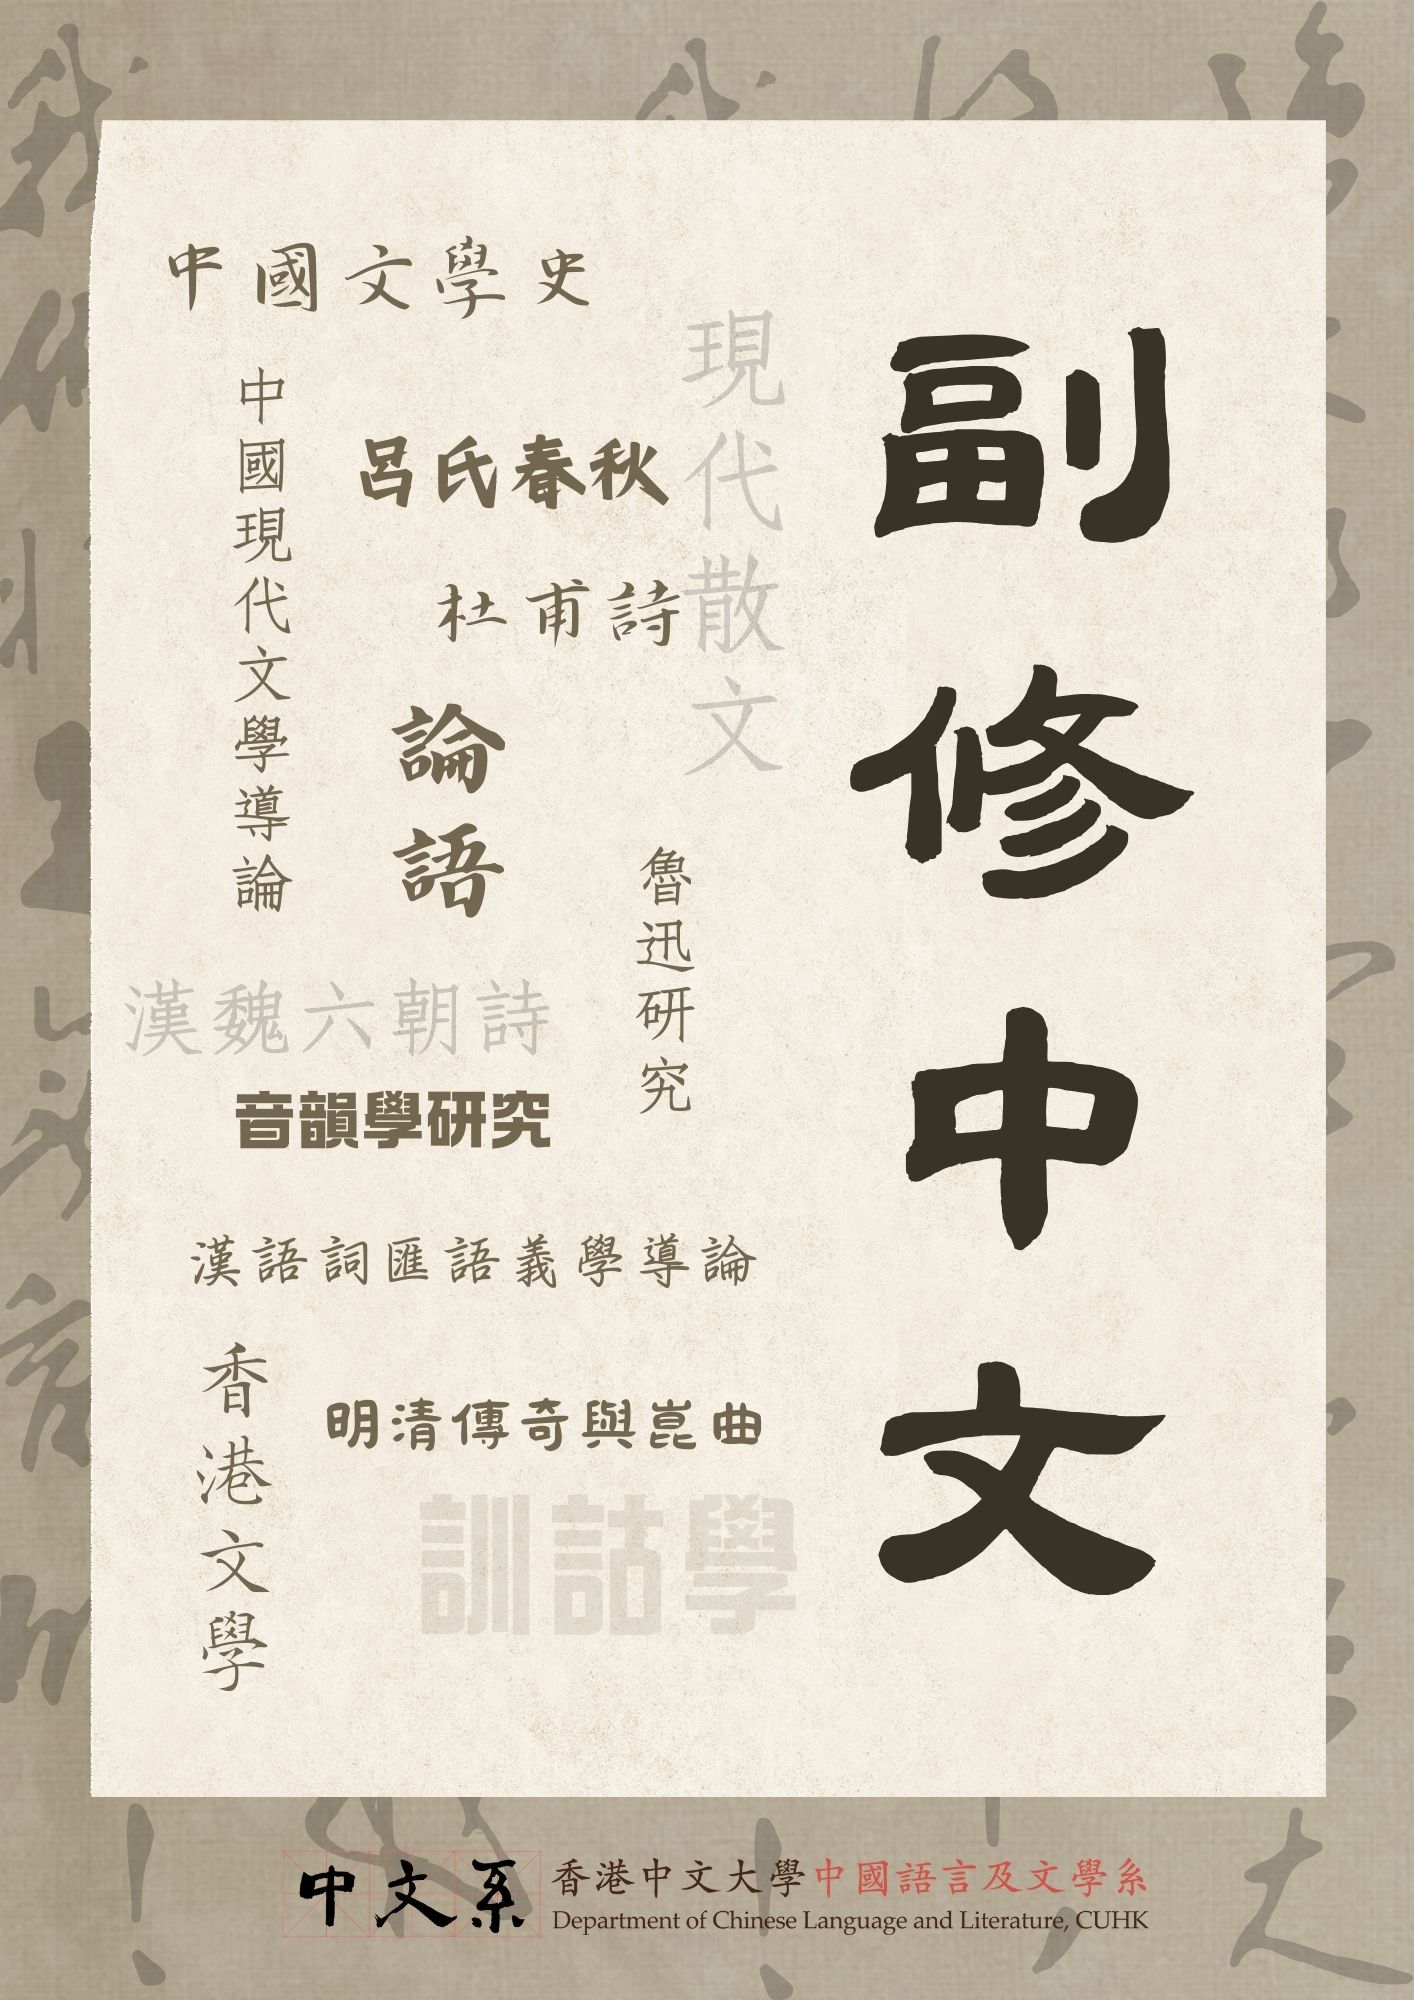 副修中文
中國文學史
現代散文
中國現代文學導論
呂氏春秋
杜甫詩
論語
魯迅研究
漢魏六朝詩
音韻學研究
漢語詞匯語義學導論
香港文學
明清傳奇與崑曲
訓詁學
中文系
香港中文大學中國語言及文學系
Department of Chinese Language and Literature, CUHK